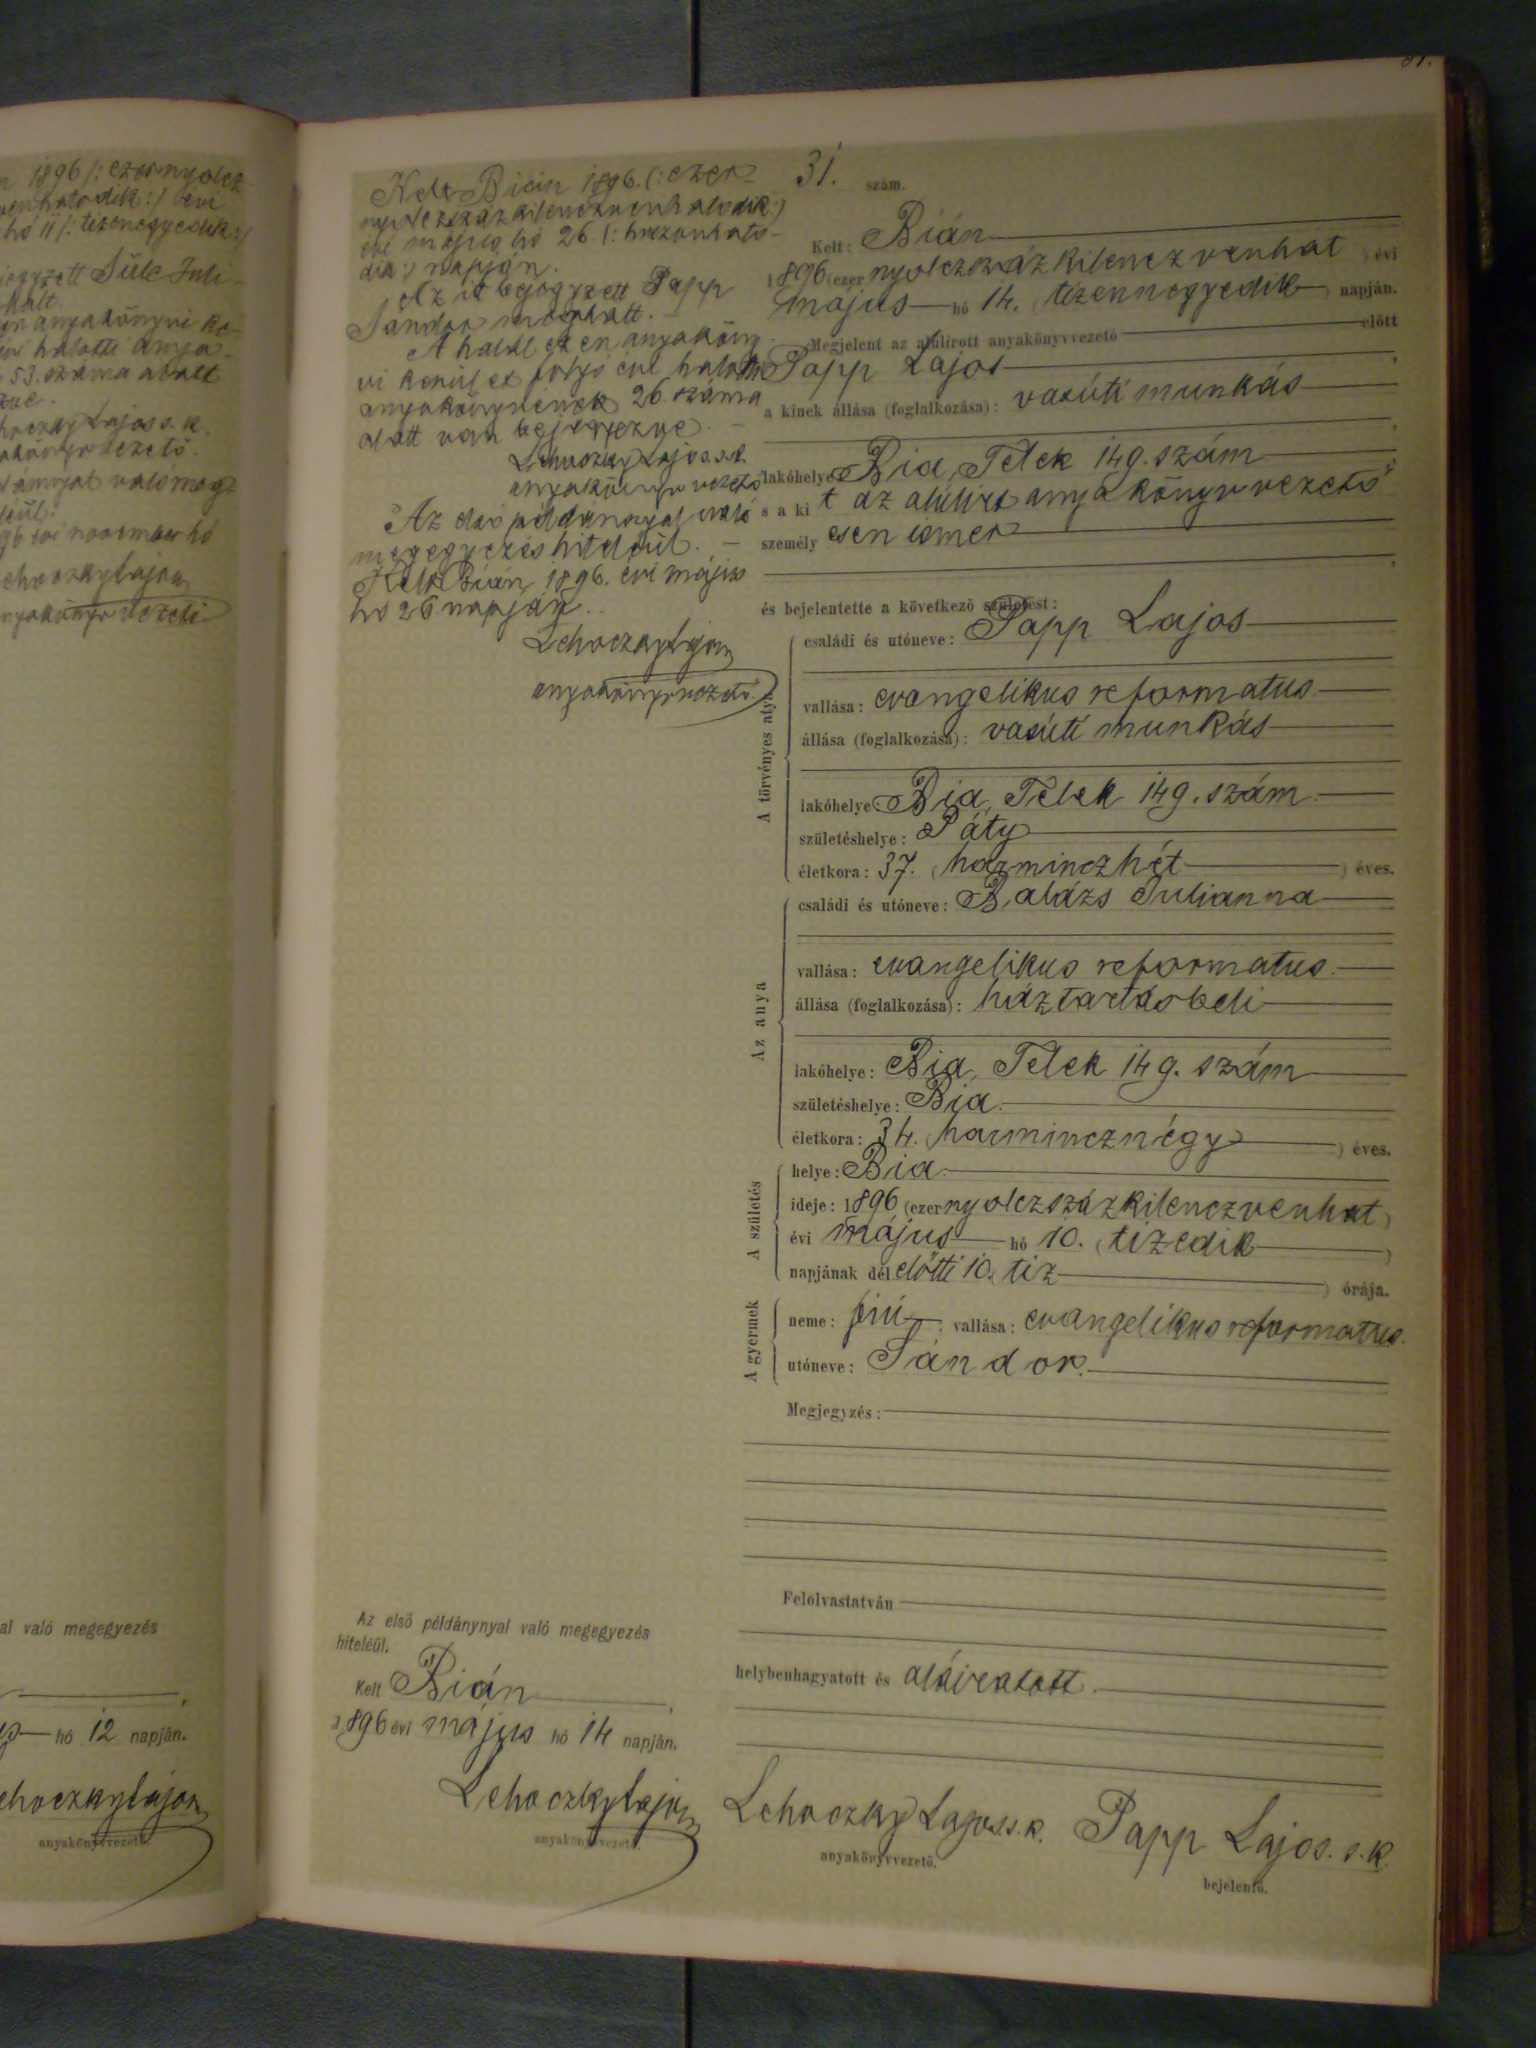 1896 /: ezernyolcz
venhatodik :/ évi
hó 11 /: tizenegyedik :/
jegyzett Süle Juli-
halt.
anyakönyvi ke-
halotti anya-
53. száma alatt
Lajos s. k.
vezető.
való meg-
november hó
Lehoczky Lajos
anyakönyvvezető
al való megegyezés
hó 12 napján.
Lehoczky Lajos
anyakönyvvezető.
31.
Kelt Bián 1896. (: ezer-
nyolczszázkilenczvenhatodik :)
évi május hó 26. (: huszonhato-
dik :) napján.
Az itt bejegyzett Papp
Sándor meghalt. —
A halál ezen anyaköny-
vi kerület folyó évi halotti
anyakönyvének 26. száma
alatt van bejegyezve. —
Lehoczky Lajos s. k.
anyakönyvvezető
Az első példánnyal való
megegyezés hiteléül. —
Kelt Bián 1896. évi május
hó 26 napján.
Lehoczky Lajos
anyakönyvvezető.
31. szám.
Kelt: Bián
1896 (ezernyolczszázkilenczvenhat) évi
május hó 14. (tizennegyedik) napján.
Megjelent az alulirott anyakönyvvezető előtt
Papp Lajos
a kinek állása (foglalkozása): vasúti munkás
lakóhelye Bia, Telek 149. szám
s a kit az alulirt anyakönyvvezető
személyesen ismer
és bejelentette a következő születést:
A törvényes atya
családi és utóneve: Papp Lajos
vallása: evangelikus reformatus
állása (foglalkozása): vasúti munkás
lakóhelye: Bia, Telek 149. szám
születéshelye: Páty
életkora: 37. (harminczhét) éves.
Az anya
családi és utóneve: Balázs Julianna
vallása: evangelikus reformatus.
állása (foglalkozása): háztartásbeli
lakóhelye: Bia, Telek 149. szám
születéshelye: Bia.
életkora: 34. (harmincznégy) éves.
A születés
helye: Bia
ideje: 1896 (ezernyolczszázkilenczvenhat)
évi május hó 10. (tizedik)
napjának délelőtti 10. (tiz) órája.
A gyermek
neme: fiú; vallása: evangelikus reformatus.
utóneve: Sándor.
Megjegyzés:
Felolvastatván
helybenhagyatott és aláiratott.
Az első példánynyal való megegyezés
hiteléül.
Kelt Bián,
1896 évi május hó 14 napján.
Lehoczky Lajos
anyakönyvvezető.
Lehoczky Lajos s. k.
anyakönyvvezető.
Papp Lajos. s. k.
bejelentő.